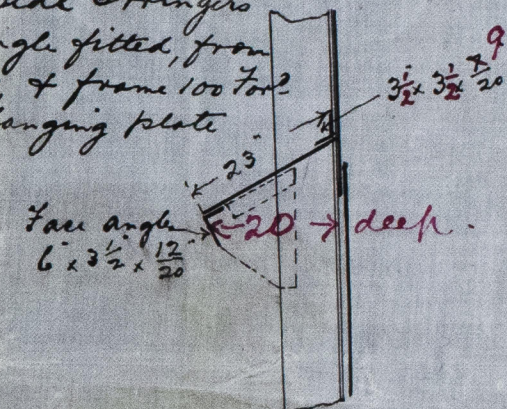 side Stringers
gle fitted, from
& frame 100 Ford
anging plate
9
3½ × 3½ × 8/20
23"
Face angle
6" × 3½" × 12/20
20 deep.